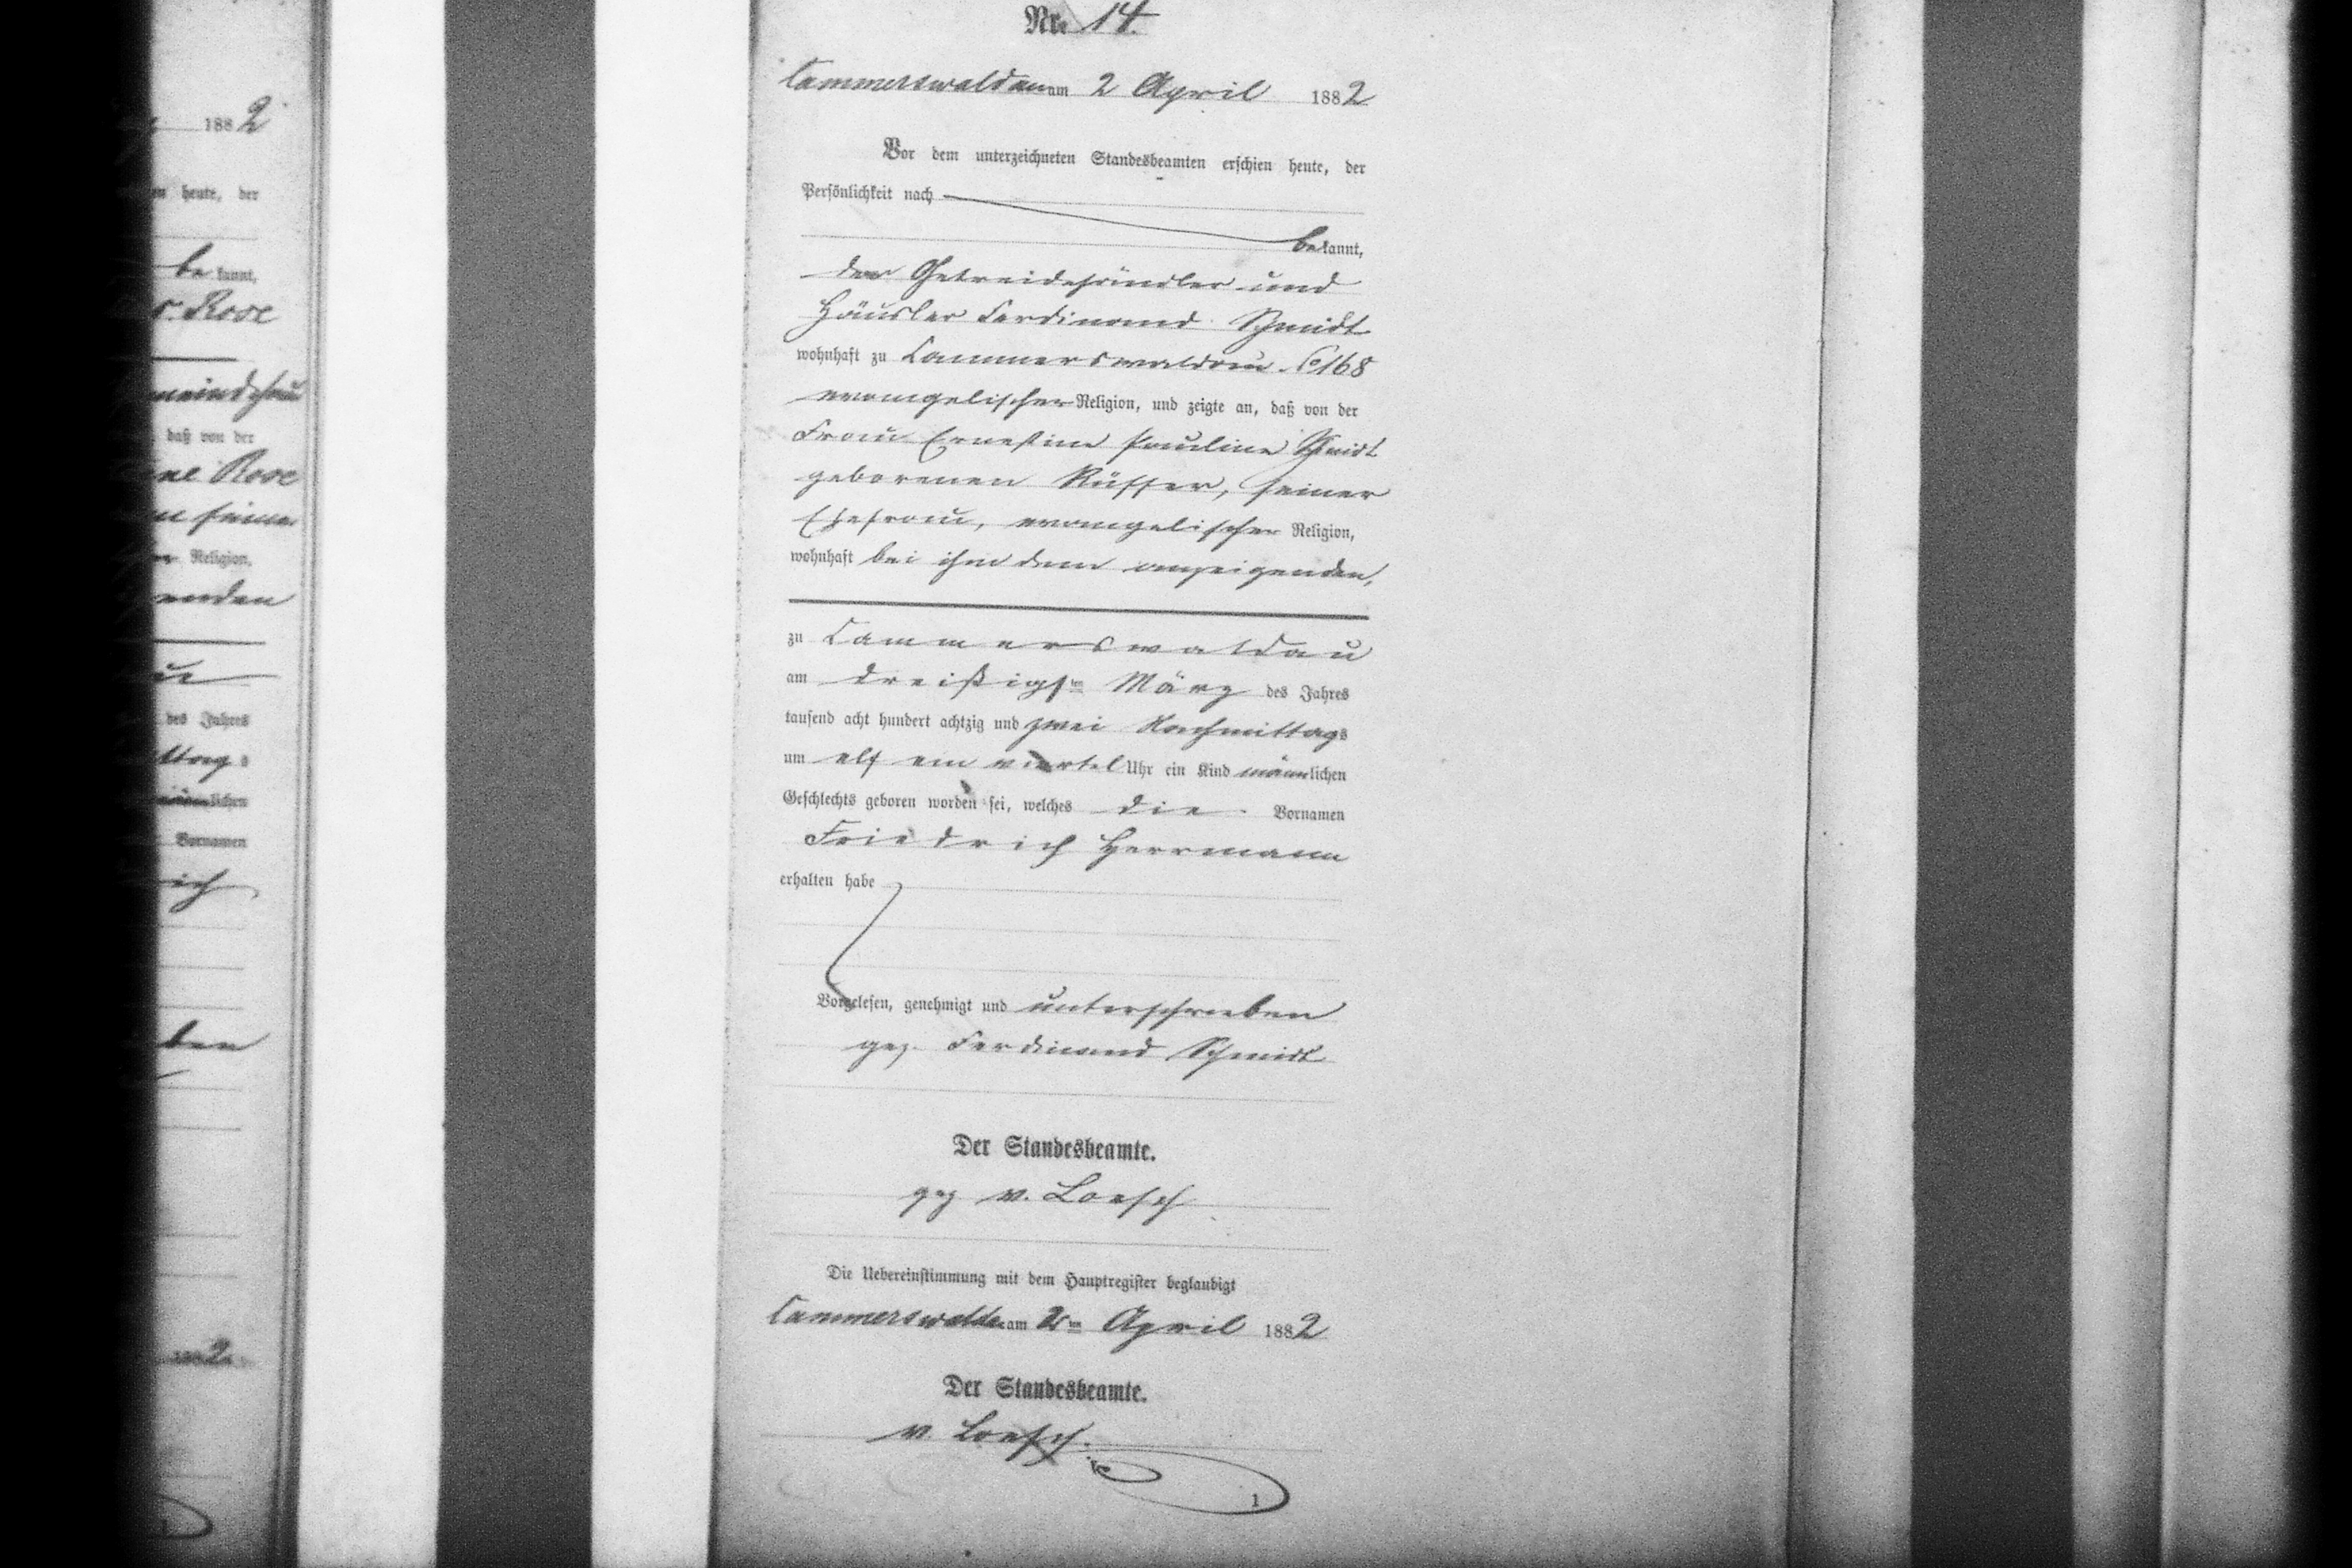 Nr. 14.
Cammerswaldau am 2 April 1882
Vor dem unterzeichneten Standesbeamten erschien heute, der
Persönlichkeit nach
bekannt,
der Getreidehändler und
Häusler Ferdinand Schmidt
wohnhaft zu Cammerswaldau 168
evangelischer Religion, und zeigte an, daß von der
Frau Ernestine Pauline Schmidt
geborenen Rüffer, seiner
Ehefrau, evangelischer Religion,
wohnhaft bei ihm dem anzeigenden,
zu Cammerswaldau
am dreißigsten März des Jahres
tausend acht hundert achtzig und zwei Nachmittags
um elf ein viertel Uhr ein Kind männlichen
Geschlechts geboren worden sei, welches die Vornamen
Friedrich Herrmann
erhalten habe
Vorgelesen, genehmigt und unterschrieben
gez. Ferdinand Schmidt
Der Standesbeamte.
gez v. Loesch
Die Uebereinstimmung mit dem Hauptregister beglaubigt
Cammerswaldau am 2ten April 1882
Der Standesbeamte.
v. Loesch.
1
1882
heute, der
bekannt,
Rose
daß von der
Rose
Religion,
des Jahres
lichen
Vornamen